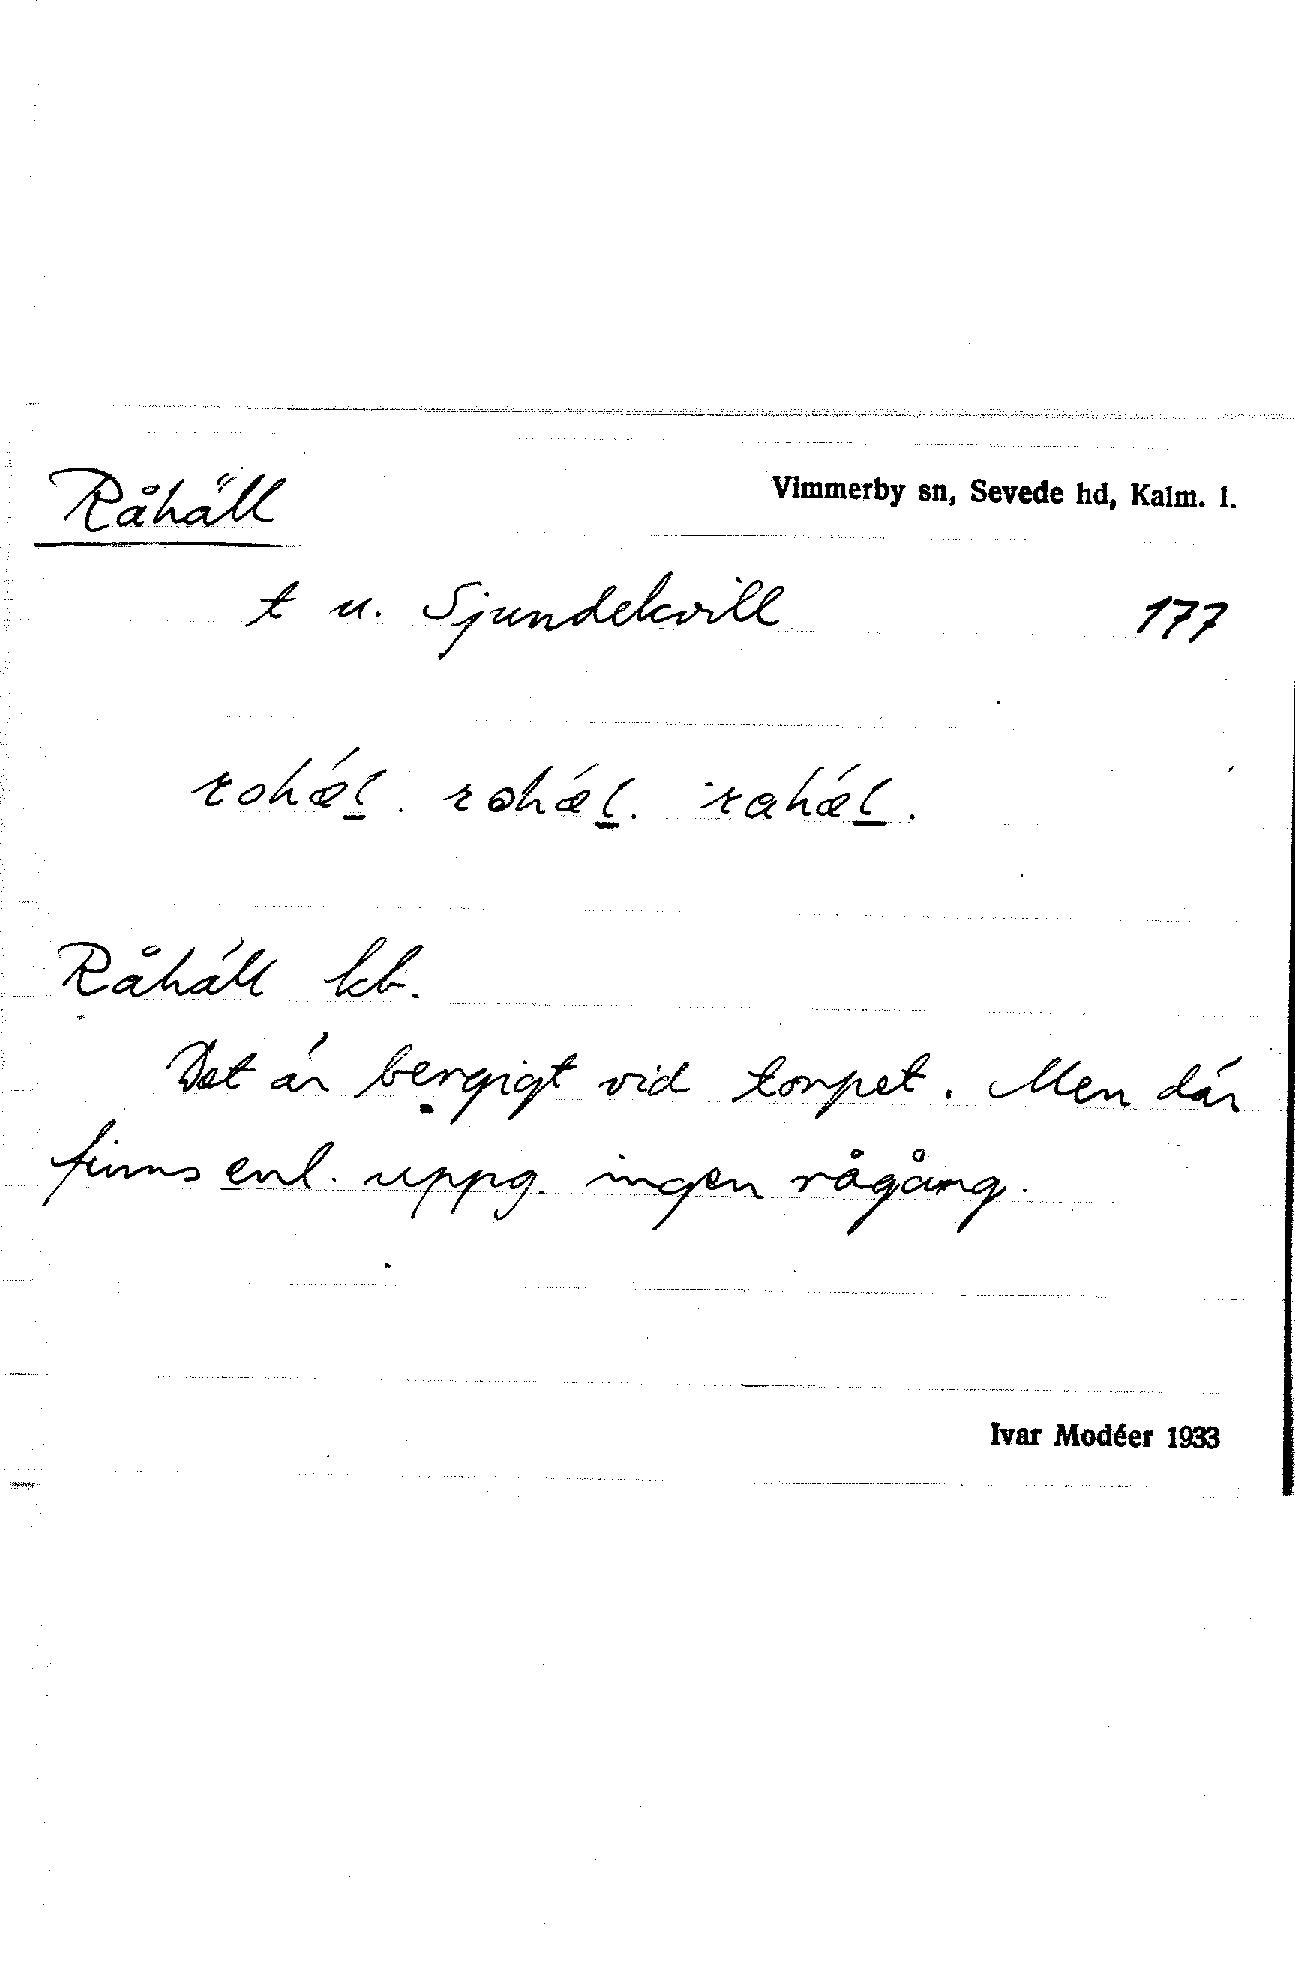 Råhäll
Vimmerby sn, Sevede hd, Kalm. l.
t u. Sjundekvill 177
rohǽl. rohǽl. rahǽl.
Råhäll kb.
Det är bergigt vid torpet. Men där
finns enl. uppg. ingen rågång.
Ivar Modéer 1933